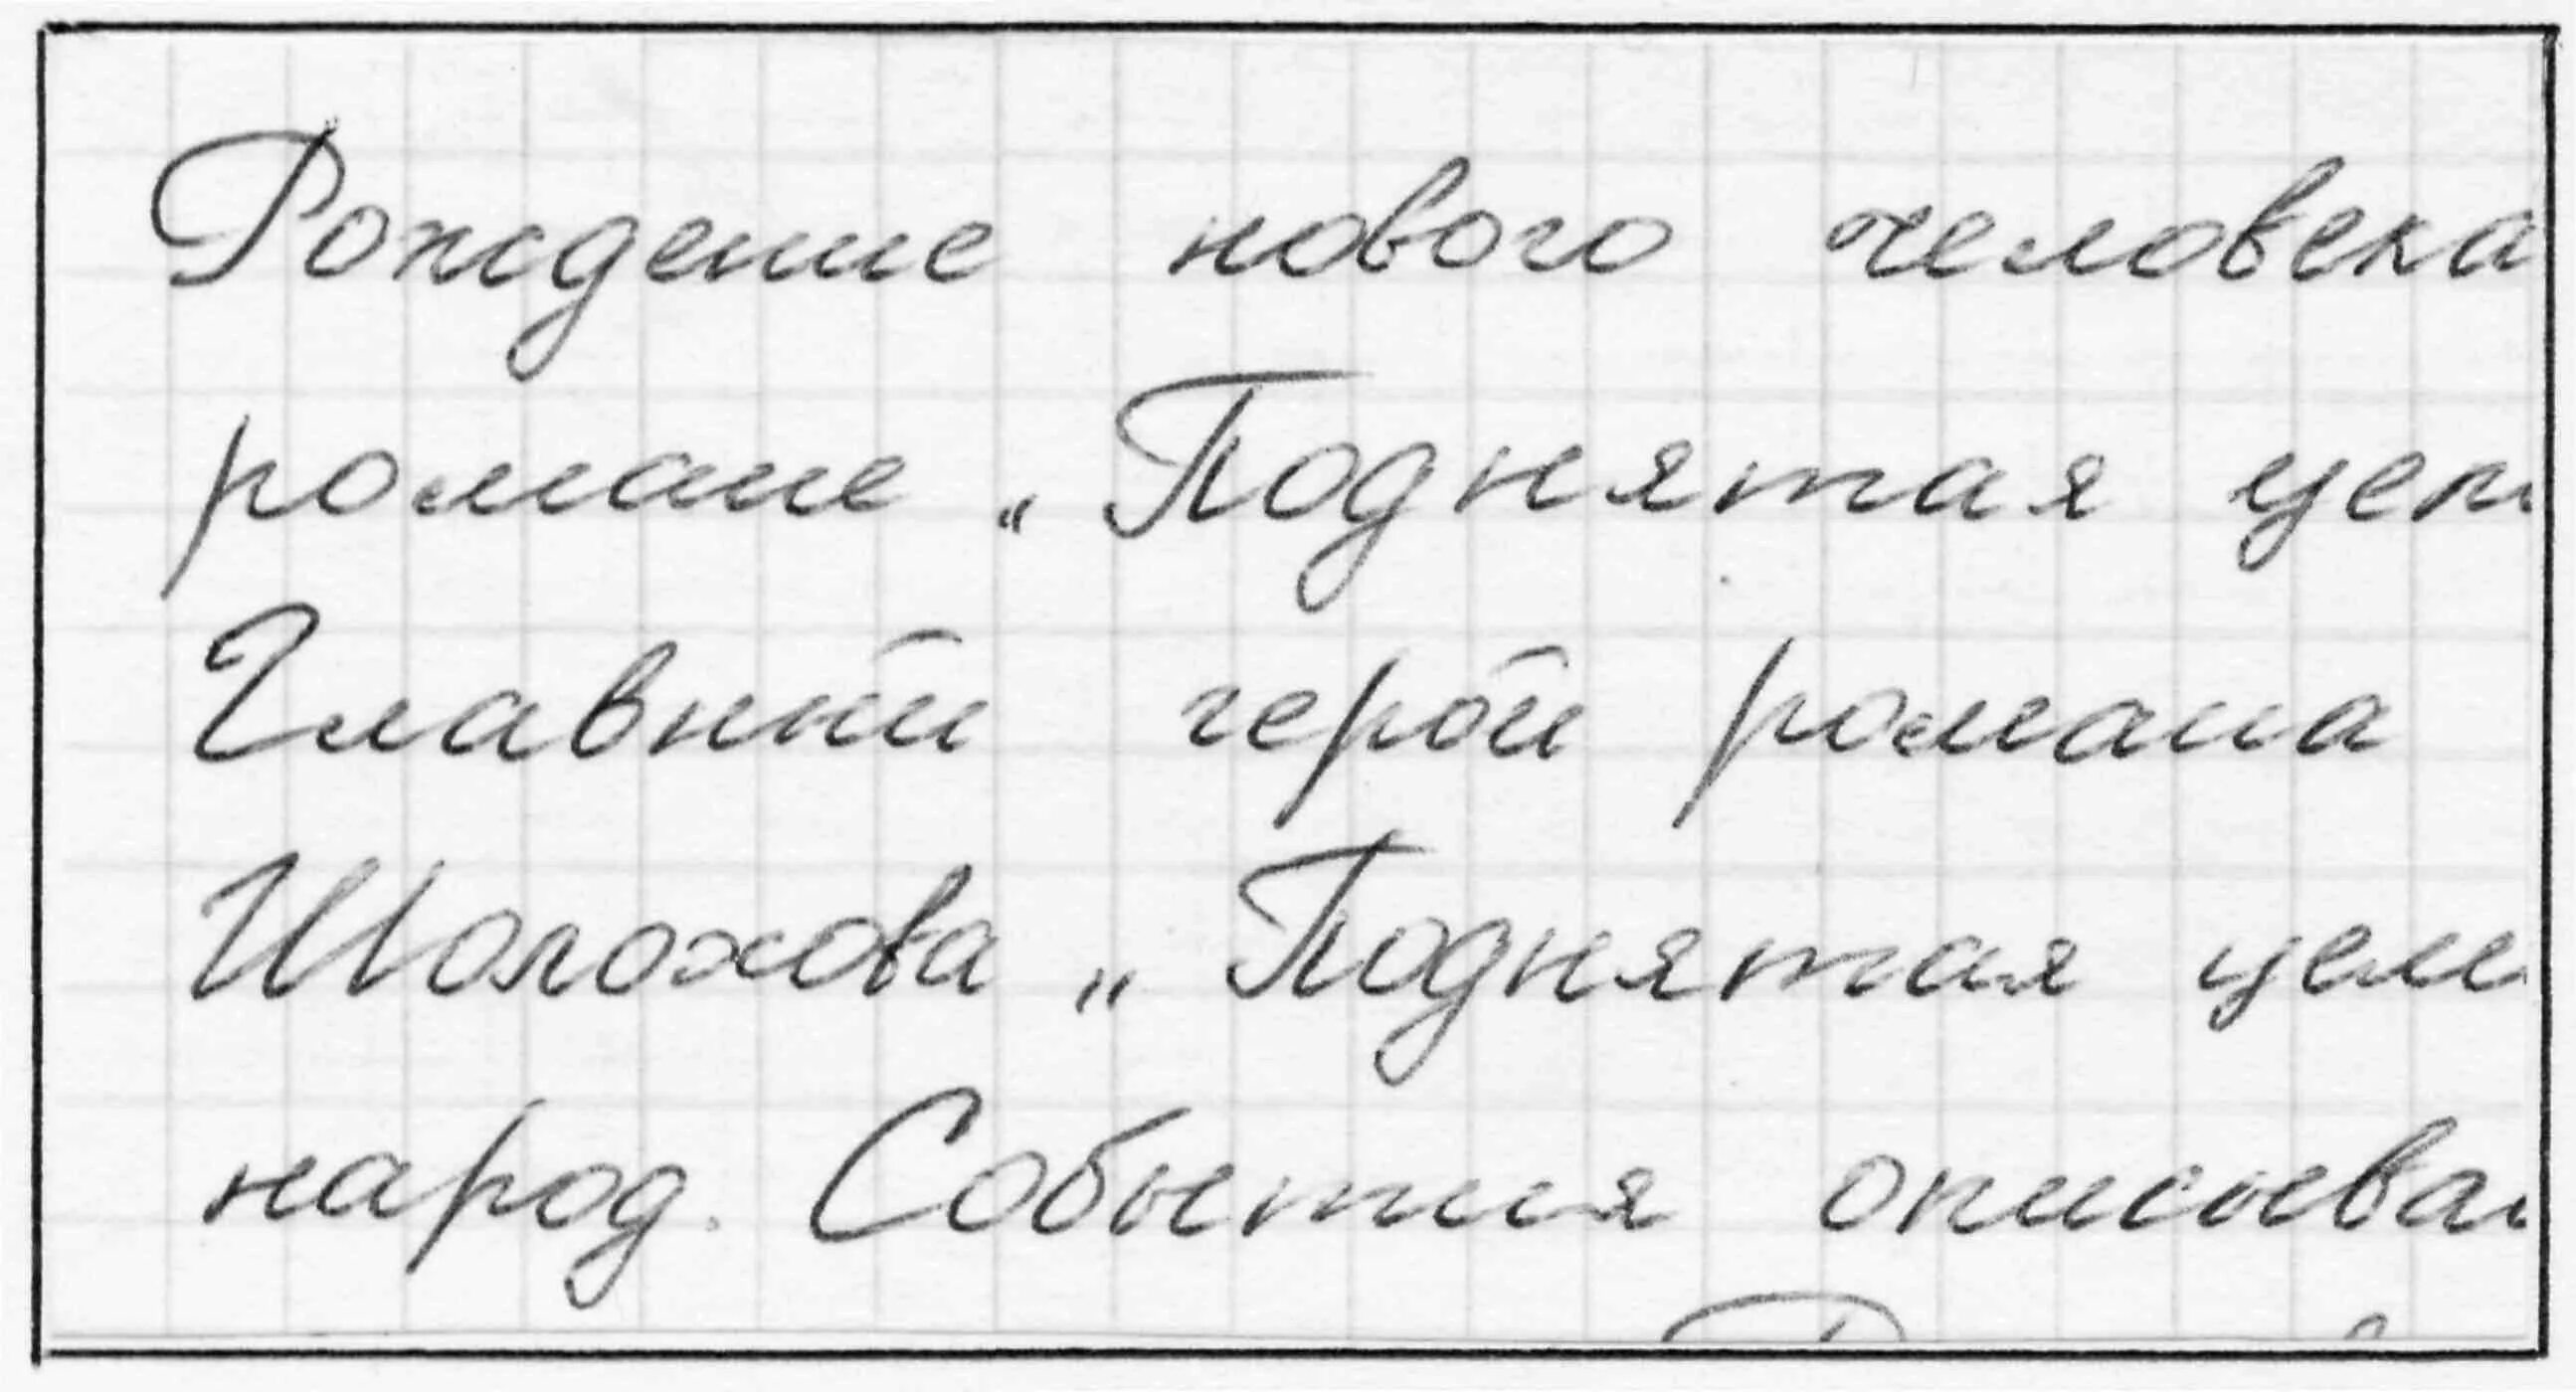 Рождение нового человека
романе „Поднятая
Главный герой романа
Шолохова „Поднятая целе
народ. События описыва